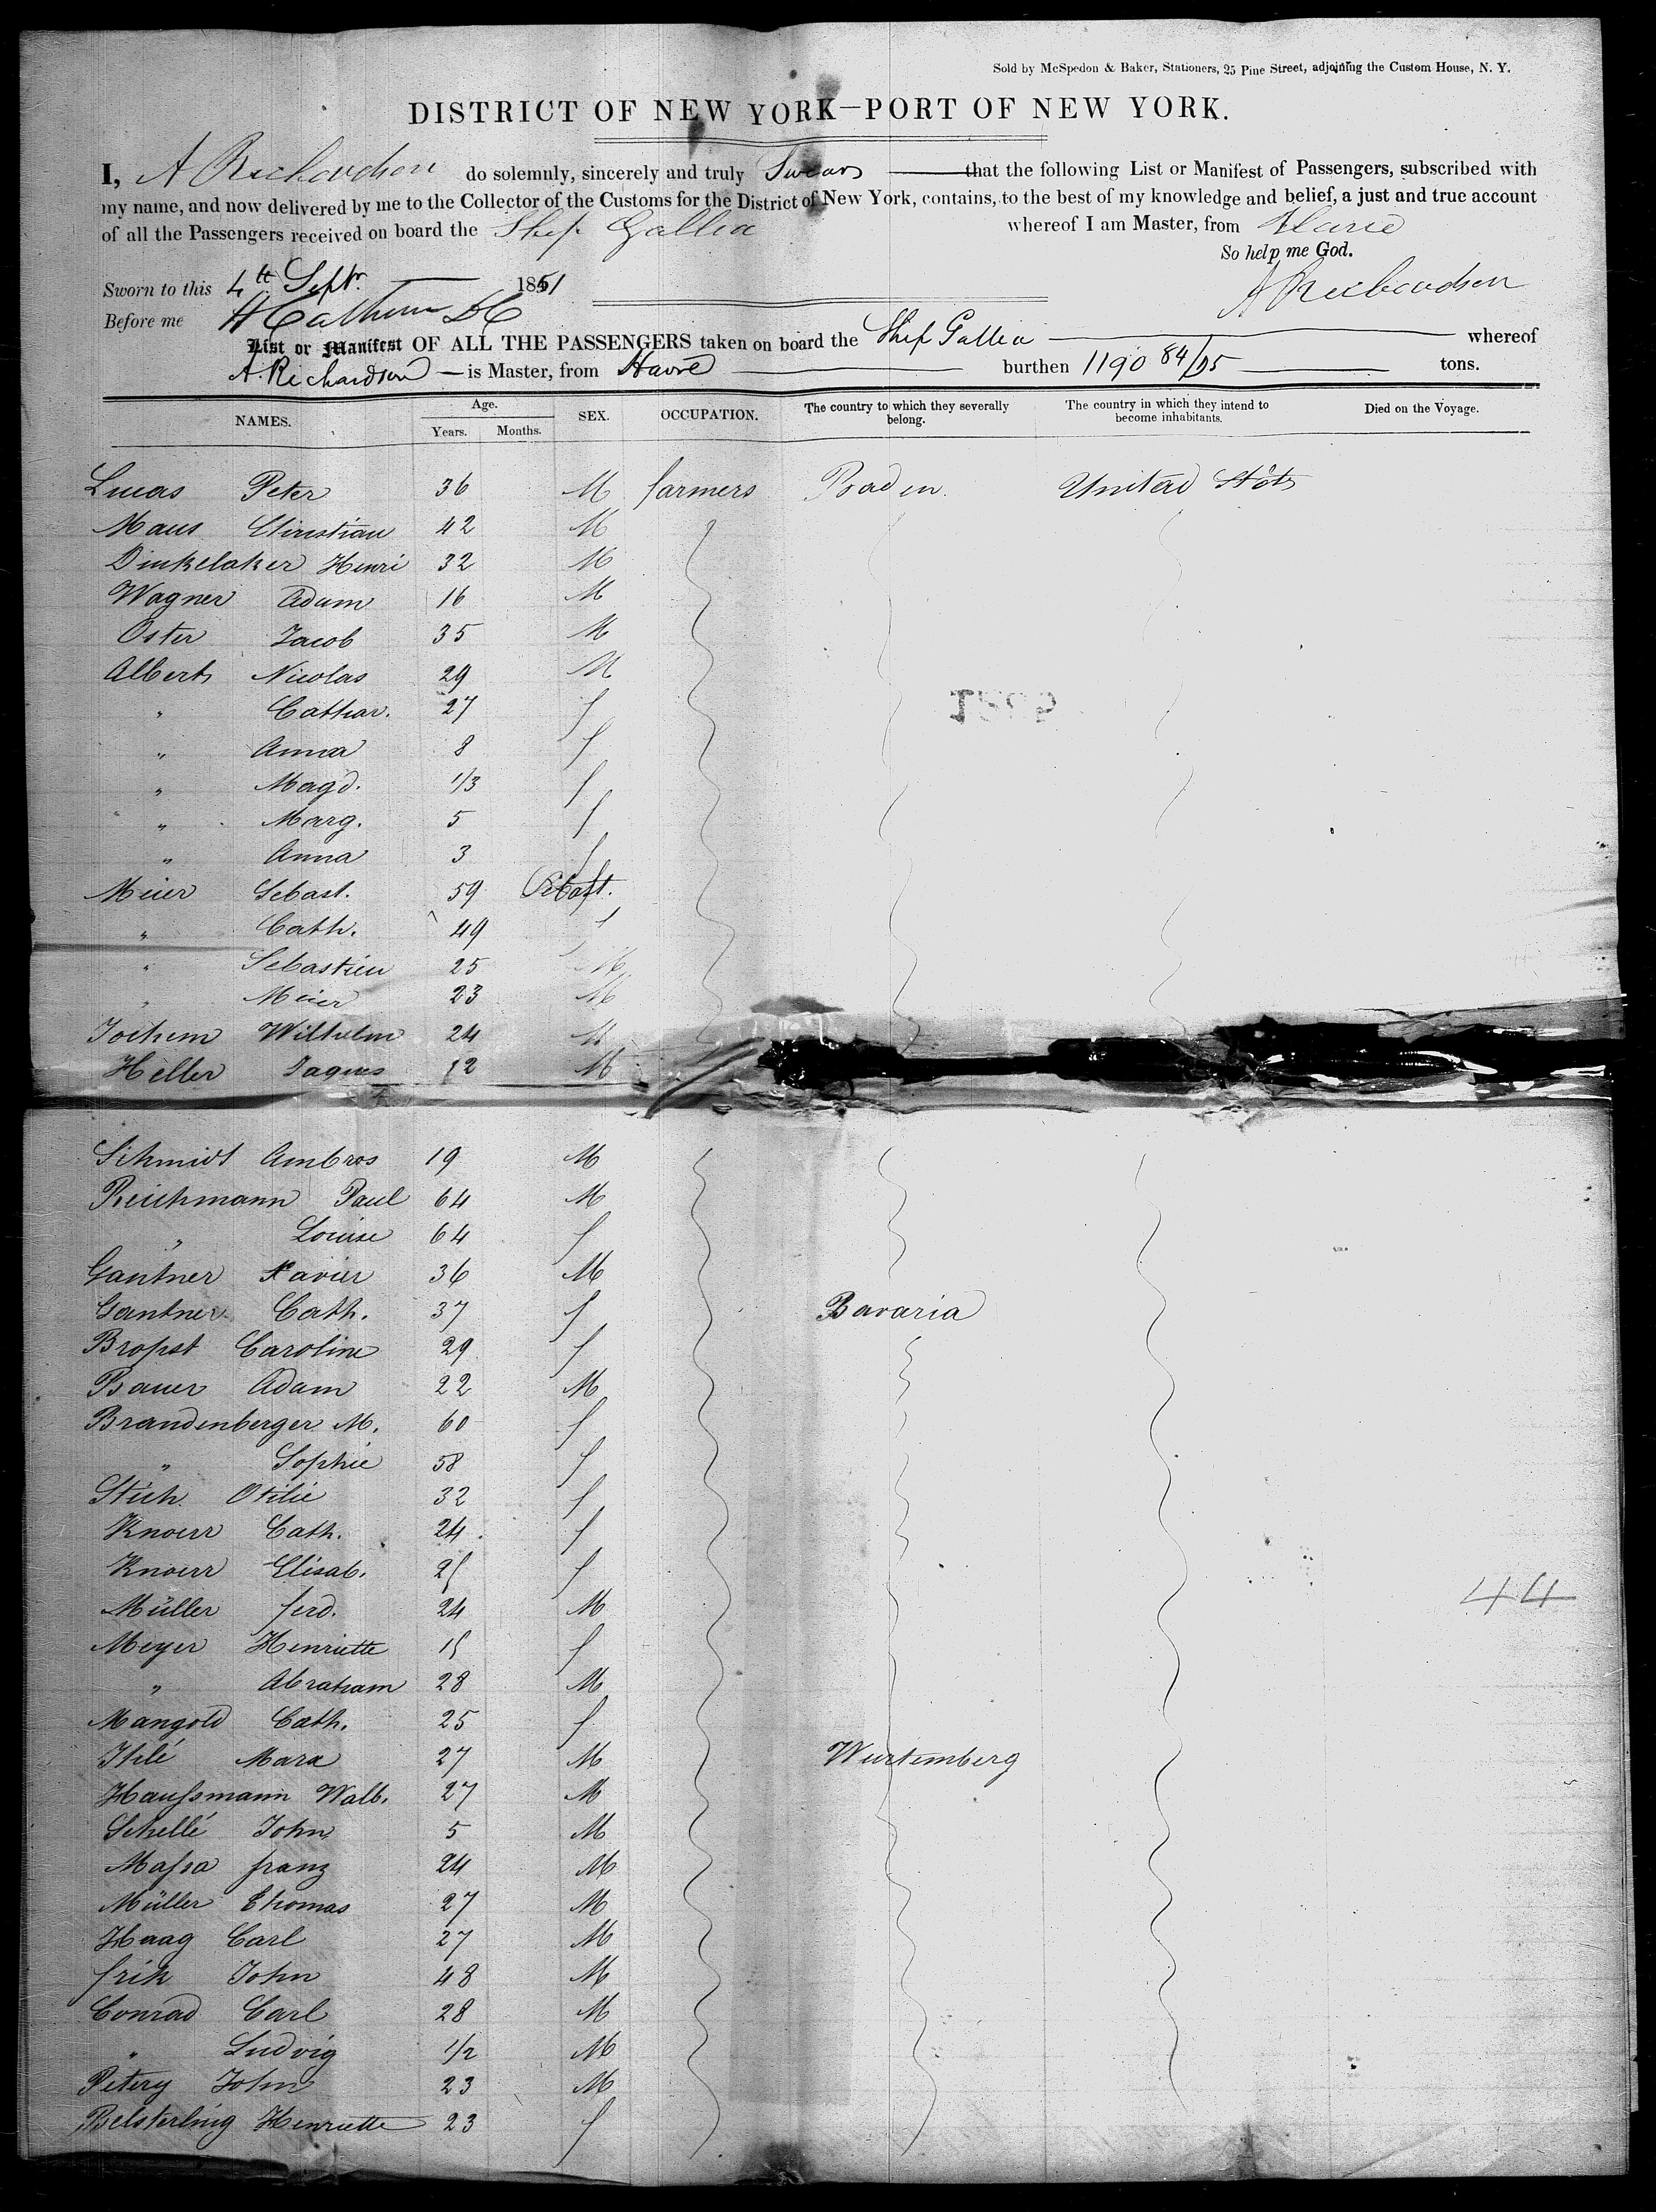 Sold by McSpedon & Baker, Stationers, 25 Pine Street, adjoining the Custom House, N. Y.
DISTRICT OF NEW YORK—PORT OF NEW YORK.
I, A Richardson do solemnly, sincerely and truly Swear that the following List or Manifest of Passengers, subscribed with
my name, and now delivered by me to the Collector of the Customs for the District of New York, contains, to the best of my knowledge and belief, a just and true account
of all the Passengers received on board the Ship Gallia whereof I am Master, from Havre
So help me God.
Sworn to this 4th Septr. 1851 A Richardson
Before me
List or Manifest OF ALL THE PASSENGERS taken on board the Ship Gallia whereof
A. Richardson is Master, from Havre burthen 1190 84/95 tons.
NAMES. Age. Years. Months. SEX. OCCUPATION. The country to which they severally belong. The country in which they intend to become inhabitants. Died on the Voyage.
Lucas Peter 36 M farmers Baden. United Stats
Maus Christian 42 M
Dinkelaker Henri 32 M
Wagner Adam 16 M
Oster Jacob 35 M
Albert Nicolas 29 M
" Cathar. 27 f
" Anna 8 f
" Magd. 1/3 f
" Marg. 5 f
" Anna 3 f
Meier Sebast. 59
" Cath. 49 f
" Sebastien 25 M
" Meier 23 M
Jochem Wilhelm 24 M
Heller Jaques 12 M
Schmidt Ambros 19 M
Reichmann Paul 64 M
" Louise 64 f
Gantner Xavier 36 M
Gantner Cath. 37 f Bavaria
Bropst Caroline 29 f
Bauer Adam 22 M
Brandenberger M. 60 f
" Sophie 58 f
Stich Otilie 32 f
Knoerr Cath. 24 f
Knoerr Elisab. 25 f
Müller ferd. 24 M
44
Meyer Henriette 15 f
" Abraham 28 M
Mangold Cath. 25 f
Ihlé Mara 27 M Wurtemberg
Haussmann Walb. 27 M
Schellé John 5 M
Massa franz 24 M
Müller Thomas 27 M
Haag Carl 27 M
frik John 48 M
Conrad Carl 28 M
" Ludvig 1/2 M
Petery John 23 M
Belsterling Henriette 23 f